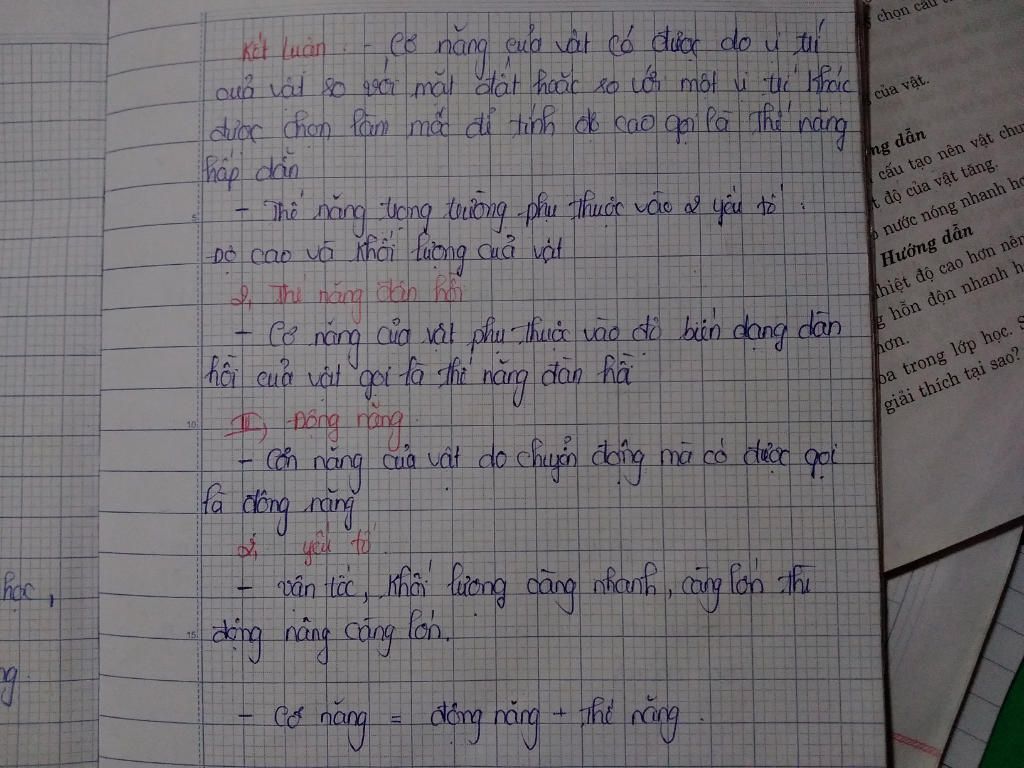 Kết luận. - Cơ năng của vật có được do vị trí
của vật so với mặt đất hoặc so với một vị trí khác
được chọn làm mốc để tính độ cao gọi là thế năng
hấp dẫn
- Thế năng trọng trường phụ thuộc vào 2 yếu tố :
Độ cao và khối lượng của vật
2, Thế năng đàn hồi
- Cơ năng của vật phụ thuộc vào độ biến dạng đàn
hồi của vật gọi là thế năng đàn hồi
III, Động năng.
- Cơn năng của vật do chuyển động mà có được gọi
là động năng
2, yếu tố
- Vân tốc, khối lượng càng nhanh, càng lớn thì
động năng càng lớn.
- Cơ năng = động năng + thế năng.
học,
ng.
chọn câu
của vật.
ng dẫn
cấu tạo nên vật chu
t độ của vật tăng.
nước nóng nhanh hơ
Hướng dẫn
nhiệt độ cao hơn nên
g hỗn độn nhanh h
hơn.
pa trong lớp học. S
giải thích tại sao?
5
10
15